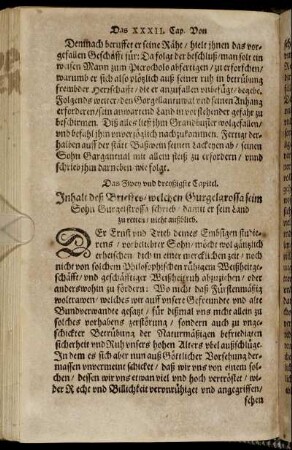 Das XXXII. Cap. Von
Demnach beruffet er seine Räthe / hielt jhnen das vor-
gefallen Geschäffte für: Da folgt der beschluß / man solt ein
weisen Mann zum Picrocholo abfertigen / zu erforschen /
warumb er sich also plötzlich auß seiner ruh in betrübung
frembder Herrschafft / die er anzufallen unbefügt / begebe.
Folgends weiter / den Gargellantuwal und seinen Anhang
erforderen / sein anwarend Land in vorstehender gefahr zu
beschirmen. Diß alles ließ jhm Grandgusier wolgefallen /
und befahl jhm unverzöglich nachzukommen. Fertigt der-
halben auff der stätt Baßwein seinen Lackeyen ab / seinen
Sohn Gargantual mit allem fleiß zu erfordern / und
schrieb jhm darneben wie folgt.
Das Zwey und dreissigste Capitel.
Inhalt deß Brieffes / welchen Gurgelgrossa seim
Sohn Gurgelstrossa schrieb / damit er sein Land
zu retten nicht auffschib.
DEr Ernst und Trieb deines Embsigen studie-
rens / vorbeliebter Sohn / möcht wol gänzlich
erheischen / dich in einer merklichen zeit / noch
nicht von solchem Philosophischen rühigem Weißheitge-
schäfft / und geschäfftiger Weißheitruh abzuziehen / oder
anderswohin zu fördern: Wo nicht daß Fürstenmäßig
woltrawen / welches wir auff unsere Gefreundte und alte
Bundverwandte gesatzt / für dißmal uns nicht allein zu
solches vorhabens zerstörung / sondern auch zu unge-
schickter Betrübung der Naturmäßigen befriedigten
sicherheit und Ruh unsers hohen Alters ubel außschlüge.
In dem es sich aber nun auß Göttlicher Vorsehung der-
massen unvermeint schicket / daß wir uns von einem sol-
chen / dessen wir uns etwan viel und hoch vertröstet / wi-
der Recht und Billichkeit verunrühiget und angegriffen /
sehen